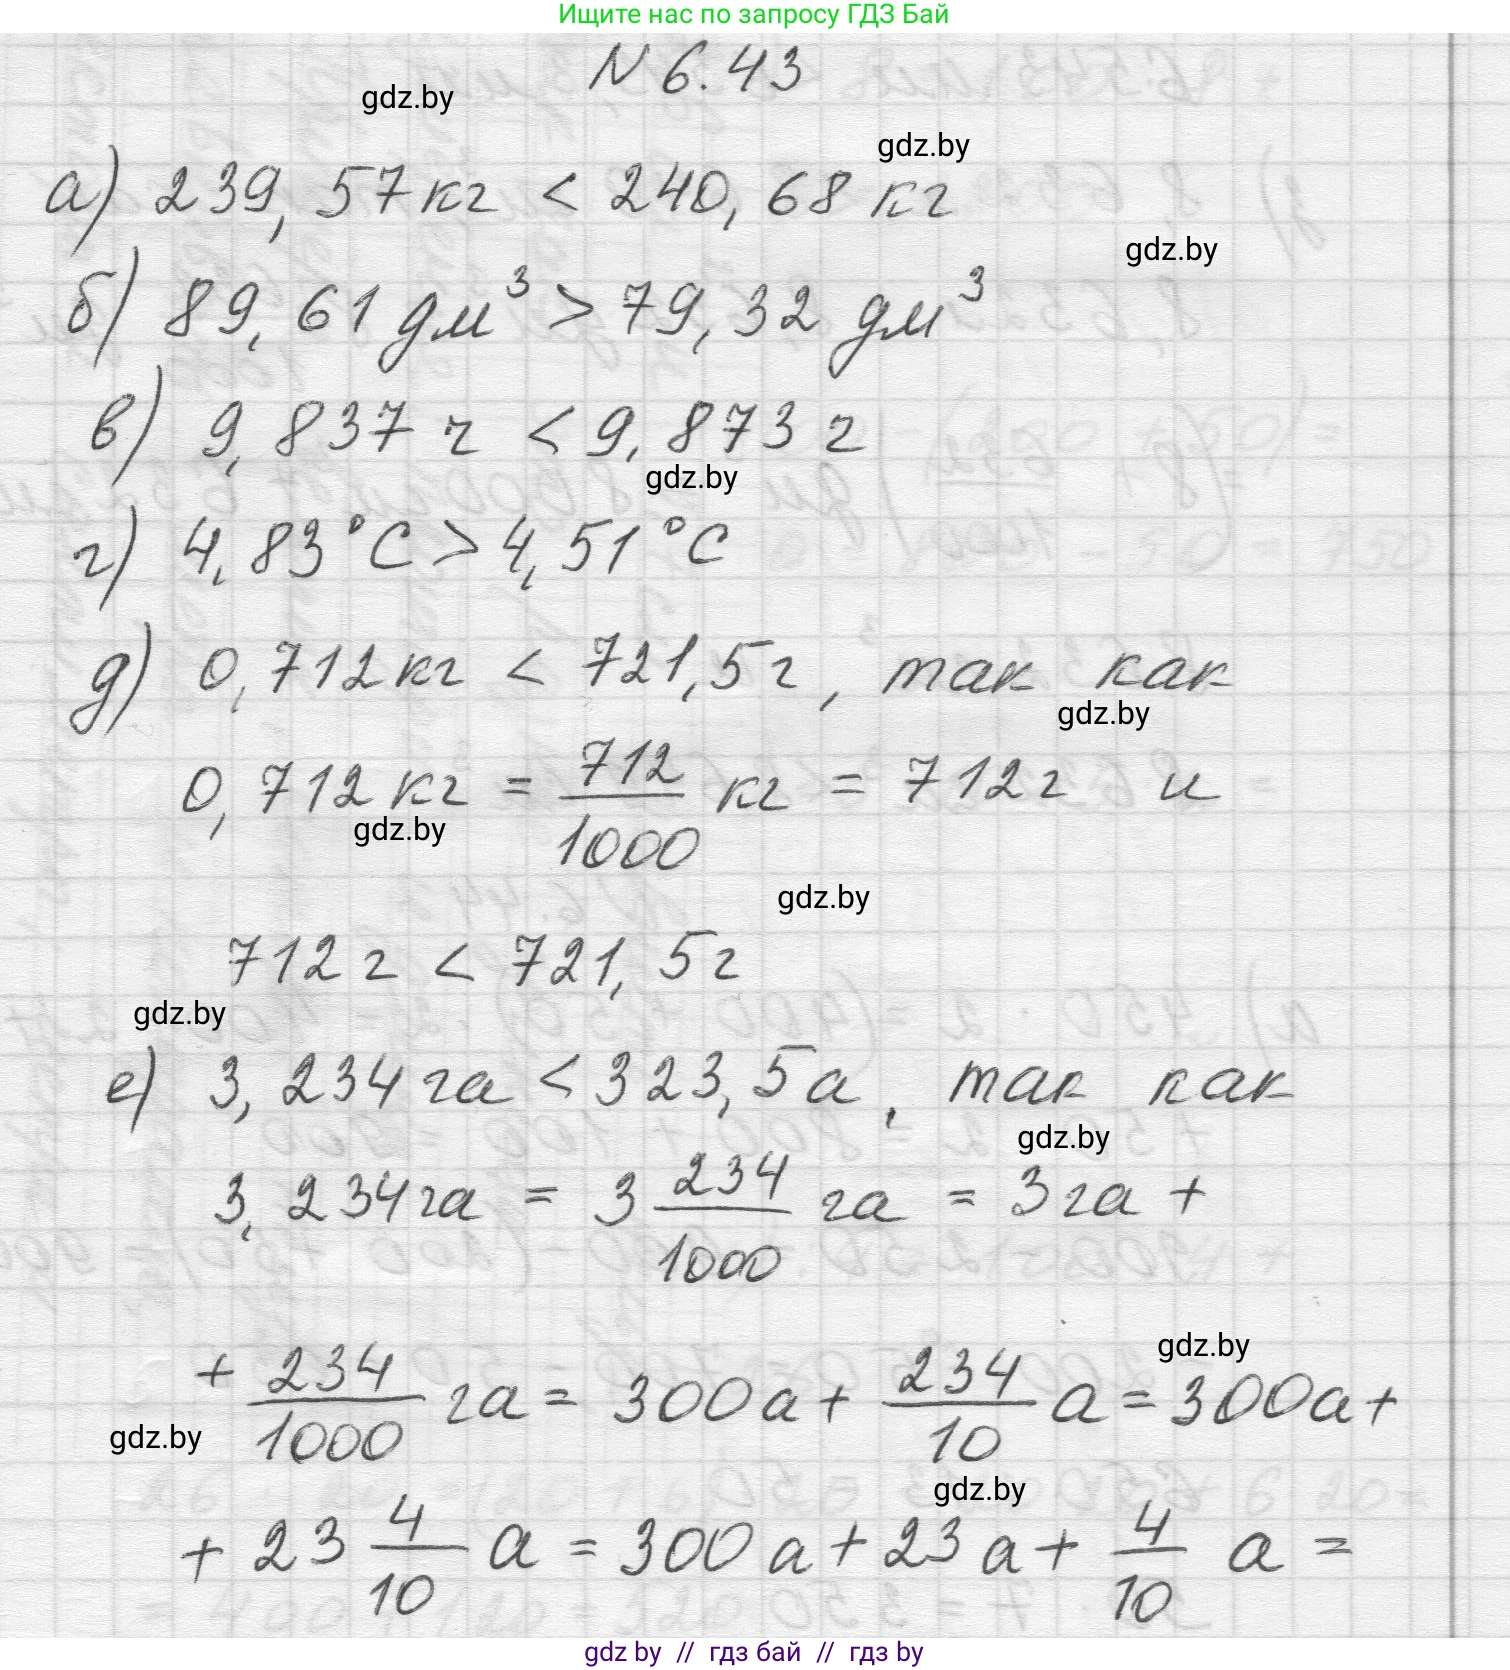 Ищите нас по запросу ГДЗ Бай
N 6.43
gdz.by
gdz.by
а) 239,57 кг < 240,68 кг
gdz.by
б) 89,61 дм³ > 79,32 дм³
в) 9,837 г < 9,873 г
gdz.by
г) 4,83 °C > 4,51 °C
д) 0,712 кг < 721,5 г, так как
gdz.by
0,712 кг = 712/1000 кг = 712 г и
gdz.by
gdz.by
712 г < 721,5 г
gdz.by
е) 3,234 га < 323,5 а, так как
gdz.by
3,234 га = 3 234/1000 га = 3 га +
gdz.by
+ 234/1000 га = 300 а + 234/10 а = 300 а +
gdz.by
gdz.by
+ 23 4/10 а = 300 а + 23 а + 4/10 а =
gdz by // гдз бай // гдз by